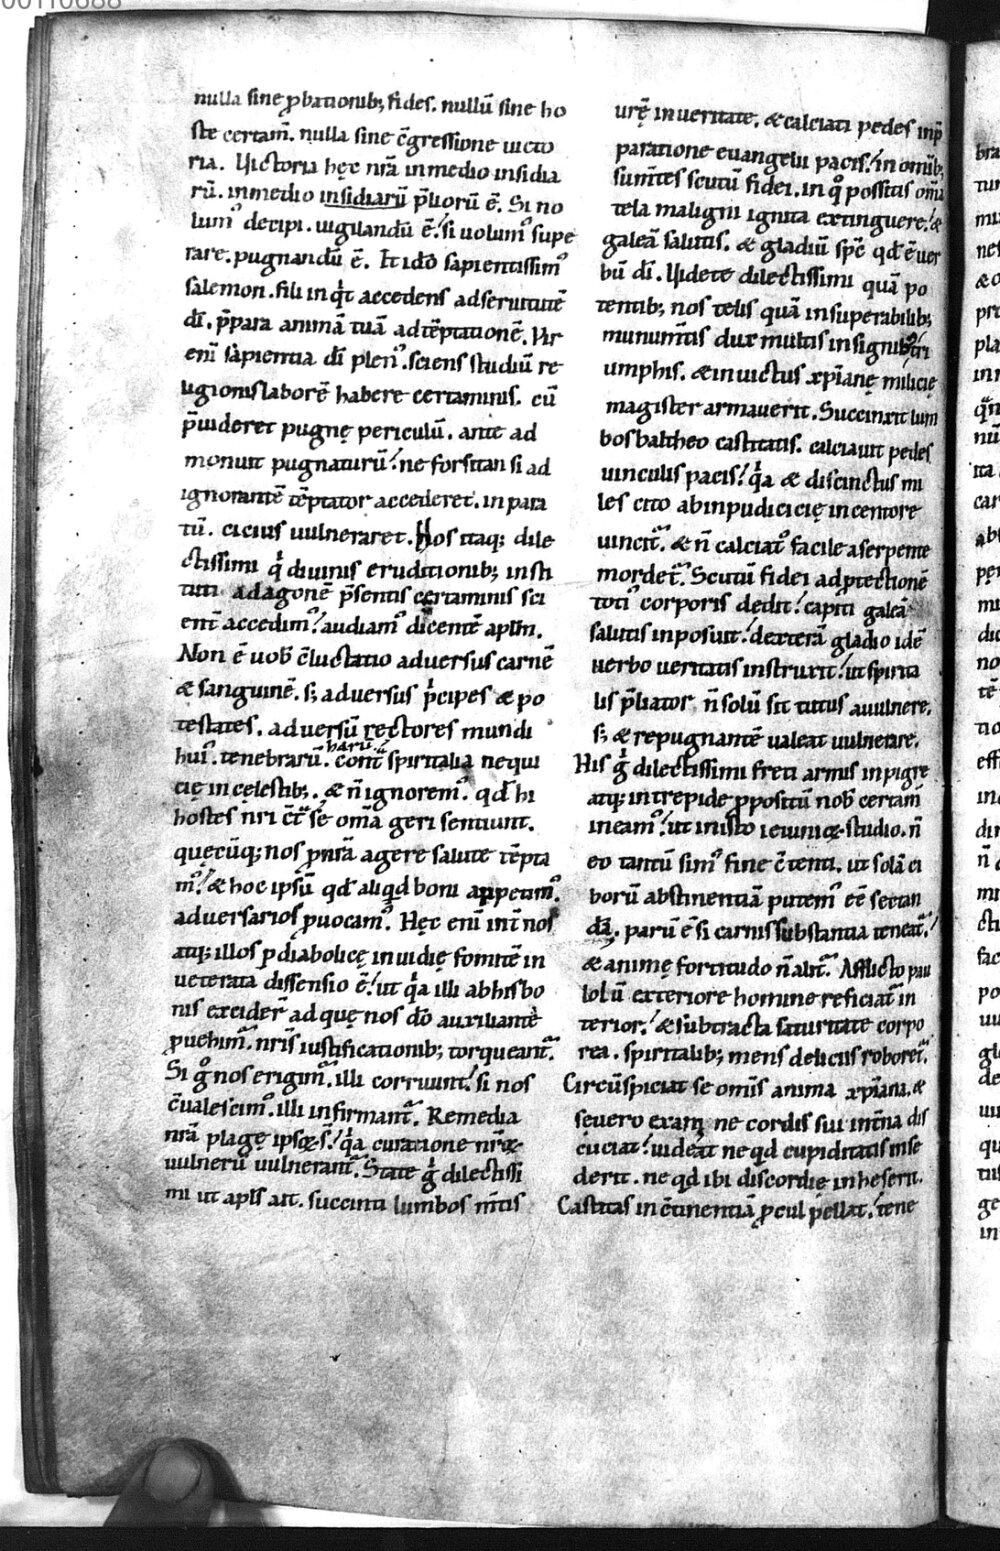 00110688
nulla sine ꝓbationib; fides. nullū sine ho
ste certam̄. nulla sine c̄gressione uicto
ria. Victoria hęc nr̄a inmedio insidia
rū. inmedio insidiarū p̄liorū ē. Si no
lum᾿ decipi. uigilandū ē. si uolum᾿ supe
rare. pugnandū ē. Et ido sapientissim᾿
salemon. fili in q̇t accedens adseruitutē
dī. p̄para animā tuā adtēptationē. Vir
enī sapientia dī plen᾿. sciens studiū re
ligionis laborē habere certaminis. cū
p̄uideret pugnę periculū. ante ad
monuit pugnaturū. ne forsitan si ad
ignorantē tēptator accederet. in para
tū. cicius uulneraret. Nos itaq; dile
ctissimi q̇ diuinis eruditionib; insti
tuti adagonē p̄sentis certaminis sci
ent̄ accedim᾿. audiam᾿ dicentē apl̄m.
Non ē uob̄ c̄luctatio aduersus carnē
& sanguinē. s; aduersus p̄cipes & po
testates. aduersū rectores mundi
hui᾿. tenebrarū. harū cont̄ spiritalia nequi
cię in cęlestib;. & n̄ ignorem᾿. qd̄ hi
hostes nr̄i c̄t̄ se om̄a geri sentiunt.
quęcūq; nos ꝓ nr̄a agere salute tēpta
m᾿. & hoc ipsū qd̄ aliqd boni appetim᾿.
aduersarios ꝓuocam᾿. Hęc enī int̄ nos
atq; illos ꝑ diabolicę inuidię fomitē in
ueterata dissensio ē. ut q̇a illi abhis bo
nis excider̄ ad quę nos do auxiliante
ꝓuehim̄. nr̄is iustificationib; torqueant̄.
Si g̊ nos erigim̄. illi corruunt. si nos
c̄ualescim᾿. illi infirmant̄. Remedia
nr̄a plagę ipsoꝝ s̄. q̇a curatione nr̄oꝝ
uulnerū uulnerant̄. State g̊ dilectissi
mi ut apls̄ ait. succinti lumbos m̄tis
urę in ueritate. & calciati pedes inp̄
paratione euangelii pacis. in omīb;
sum̄tes scutū fidei. in q̊ possitis om̄a
tela maligni ignita extinguere. &
galeā salutis. & gladiū spc̄ qd̄ ē uer
bū dī. Videte dilectissimi quā po
tentib; nos telis quā insuperabilib;
munim̄tis dux multis insignis tri
umphis. & inuictus xp̄ianę milicię
magister armauerit. Succinxit lum
bos baltheo castitatis. calciauit pedes
uinculis pacis. q̇a & discinctus mi
les cito ab inpudicicię incentore
uincit̄. & n̄ calciat᾿ facile a serpente
mordet̄. Scutū fidei adp̄tectionē
toti᾿ corporis dedit. capiti galeā
salutis inposuit. dexterā gladio idē
uerbo ueritatis instruxit. ut spirita
lis p̄liator n̄ solū sit tutus auulnere.
s; & repugnantē ualeat uulnerare.
His g̊ dilectissimi freti armis inpigre
atq; intrepide ꝓpositū nob̄ certam̄
ineam᾿. ut in isto ieiunioꝝ studio. n̄
eo tantū sim᾿ fine c̄tenti. ut solā ci
borū abstinentiā putem᾿ ēē sectan
dā. parū ē si carnis substantia teneat̄.
& animę fortitudo n̄ alit̄. Afflicto pau
lolū exteriore homine reficiat̄ in
terior. & subtracta saturitate corpo
rea. spiritalib; mens deliciis roboret̄.
Circūspiciat se om̄is anima xp̄iana. &
seuero exam̄ ne cordis sui int̄na dis
cuciat. uideat ne qd cupiditatis inse
derit. ne qd ibi discordię inheserit.
Castitas inc̄tinentiā ꝓcul pellat. tene